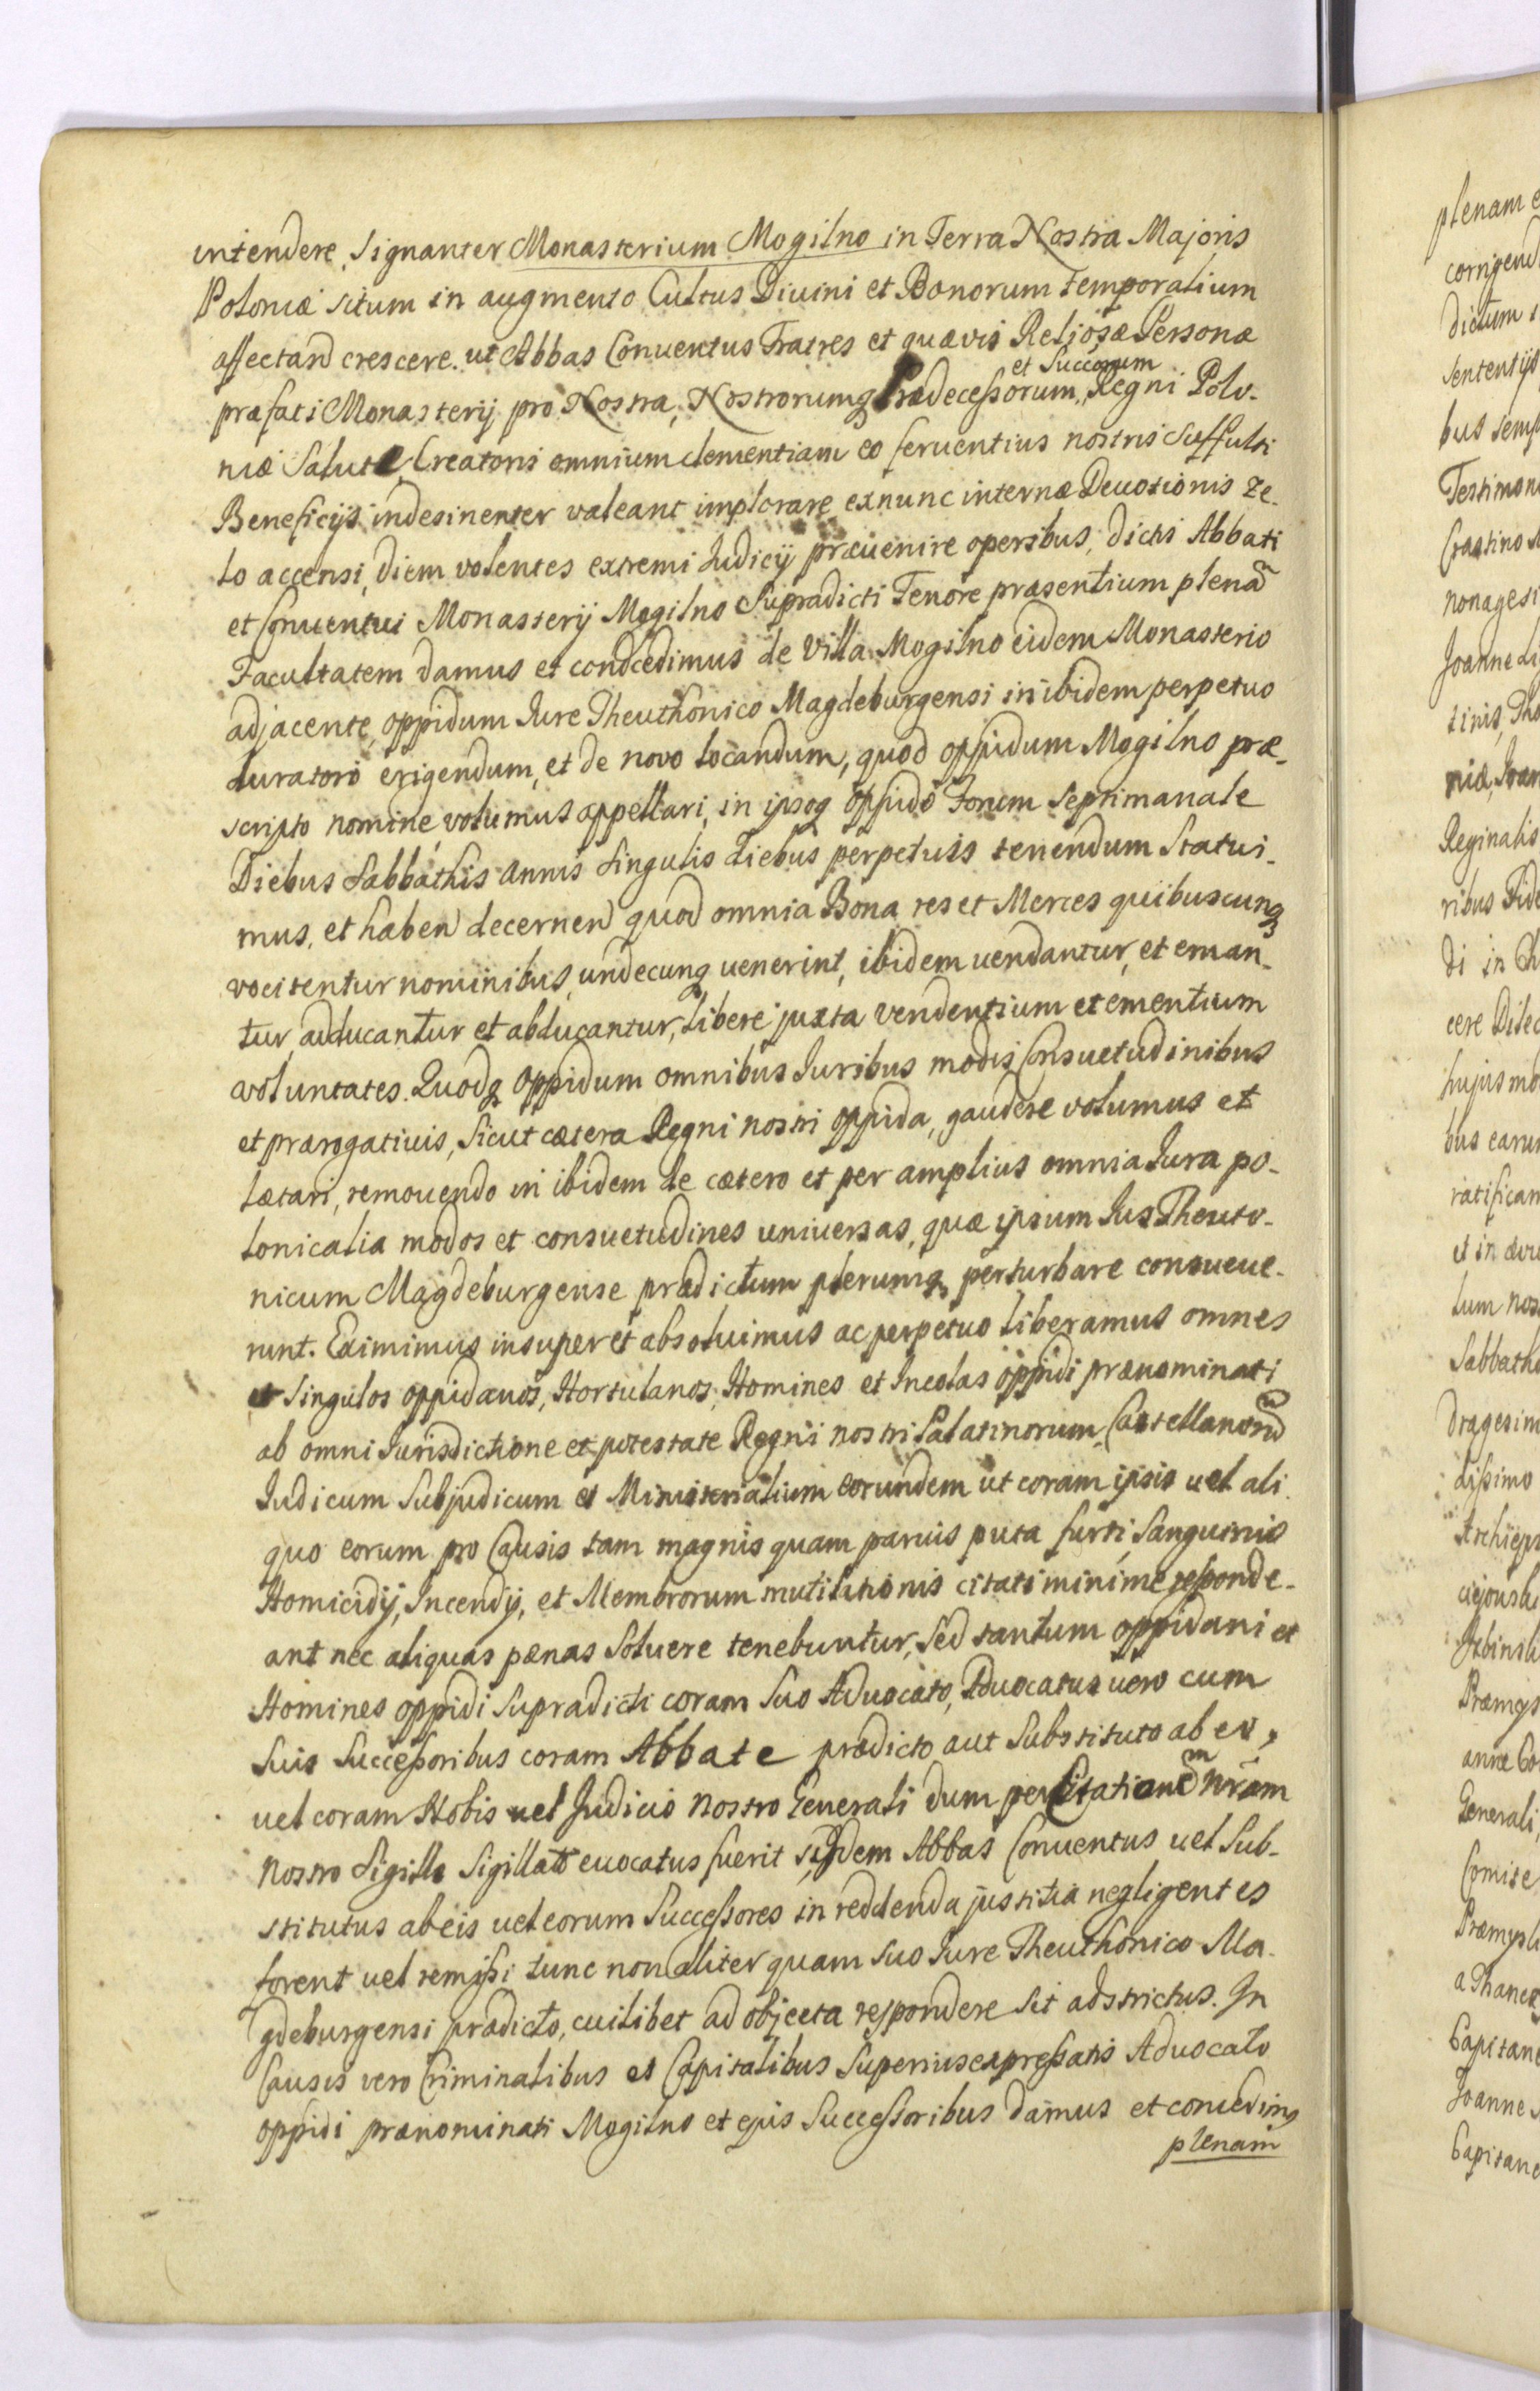 intendere, Signanter Monasterium Mogilno in Terra Nostra Majoris
Poloniæ situm in augmento Cultus Diuini et Bonorum Temporalium
affectand crescere. ut Abbas Conuentus Fratres et quævis Reliosæ Personæ
et Succorum
præfati Monasterij pro Nostra, Nostrorumq Prædecessorum, Regni Polo-
niæ Salute, Creatoris omnium clementiam eo feruentius nostris suffulti
Beneficijs indesinenter valeant implorare exnunc internæ Deuotionis ze-
lo accensi, diem volentes extremi Iudicij præuenire operibus, dictis Abbati
et Conuentui Monasterij Mogilno Supradicti Tenore præsentium plenã
Facultatem damus et condcedimus de Villa Mogilno eidem Monasterio
adjacente, oppidum Iure Theuthonico Magdeburgensi inibidem perpetuo
duratoro erigendum, et de novo locandum, quod oppidum Mogilno præ-
scripto nomine volumus appellari, in ipsoq oppido Forum Septimanale
Diebus Sabbathis annis singulis diebus perpetuis tenendum Statui-
mus, et haben decernen quod omnia Bona res et Merces quibuscunq
vocitentur nominibus, undecunq uenerint, ibidem uendantur, et eman-
tur adducantur et abducantur, libere juxta vendentium et ementium
voluntates. Quodq oppidum omnibus Iuribus modis Consuetudinibus
et prærogatiuis, Sicut cætera Regni nostri oppida, gaudere volumus et
lætari, remouendo in ibidem de cætero et per amplius omnia Iura po-
lonicalia modos et consuetudines universas, quæ ipsum Ius Theuto-
nicum Magdeburgense prædictum plerumq perturbare consueue-
runt. Eximimus insuper et absoluimus ac perpetuo liberamus omnes
et Singulos oppidanos, Hortulanos, Homines et Incolas oppidi prænominati
ab omni Iurisdictione et potestate Regni nostri Palatinorum, Castellanorũ
Iudicum Subjudicum et Ministerialium eorundem ut coram ipsis uel ali
quo eorum pro Causis tam magnis quam paruis puta furti, Sanguinis
Homicidij, Incendij, et Membrorum mutilationis citati minime responde-
ant nec aliquas pænas Soluere tenebuntur, Sed tantum oppidani et
Homines oppidi Supradicti coram Suo Aduocato, Aduocatus uero cum
Suis Successoribus coram Abbate prædicto aut Substituto ab eo,
uel coram Nobis uel Judicio nostro Generali dum per Citationem nrãm
nostro Sigillo Sigillatã euocatus fuerit, Abbas Conuentus uel Sub-
stitutus ab eis uel eorum Successores in reddenda justitia negligentes
forent uel remissi tunc non aliter quam Suo Iure Theuthonico Ma-
gdeburgensi prædicto, cuilibet ad objecta respondere sit adstrictus. In
Causis vero Criminalibus et Capitalibus Superius expressatis Aduocato
oppidi prænominati Mogilno et ejus Successoribus damus et concedimꝰ
plenam
plenam
corrigend
dictum
sententijs
bus semp
Testimon
Crastino
nonagesi
Joanne
tinis, Tho
niæ, Joan
Reginalis
ribus Fide
di in
cere Dilec
hujusmo
bus earum
ratifican
et in
tum nos
Sabbatho
dragesim
dissimo
Archiepi
Præmys
annæ
Generali,
Comite
Præmysl
a
Capitane
Joanne
Capitane